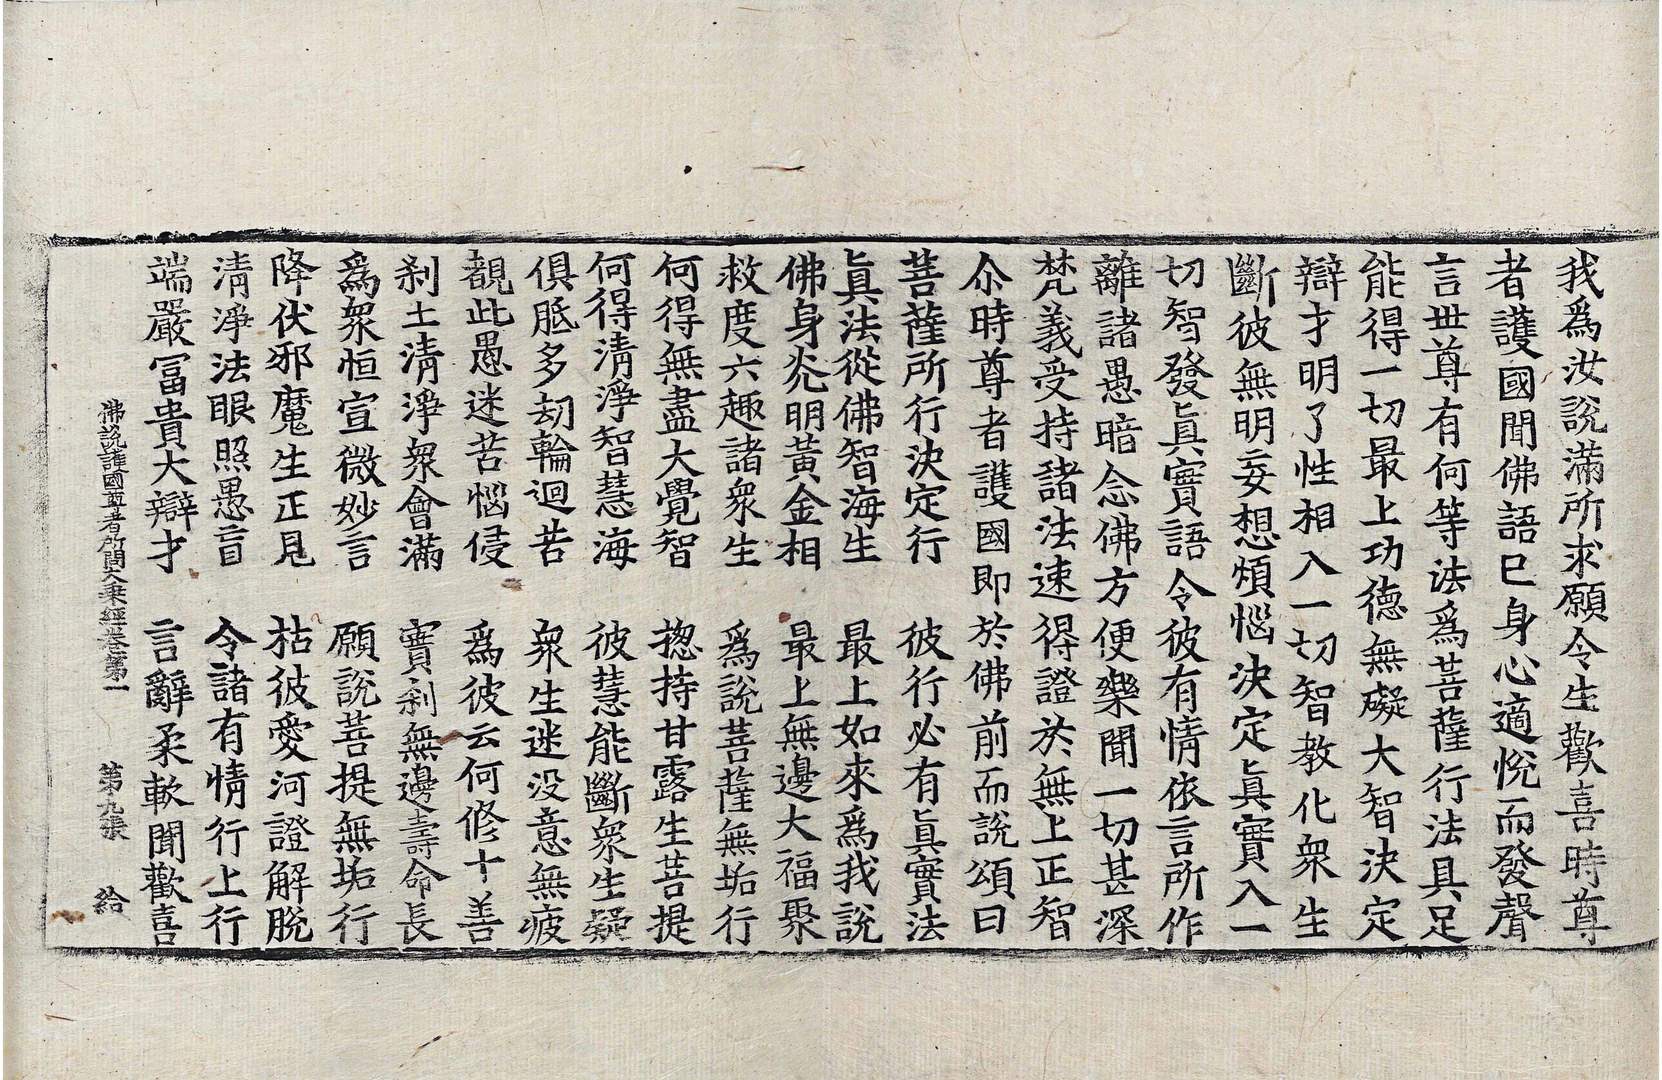 我爲汝說滿所求願令生歡喜時尊
者護國聞佛語已身心適悅而發聲
言世尊有何等法爲菩薩行法具足
能得一切最上功德無礙大智決定
辯才明了性相入一切智教化衆生
斷彼無明妄想煩惱決定眞實入一
切智發眞實語令彼有情依言所作
離諸愚暗念佛方便樂聞一切甚深
梵義受持諸法速得證於無上正智
尒時尊者護國即於佛前而說頌曰
菩薩所行決定行　彼行必有眞實法
眞法從佛智海生　最上如來爲我說
佛身光明黃金相　最上無邊大福聚
救度六趣諸衆生　爲說菩薩無垢行
何得無盡大覺智　揔持甘露生菩提
何得清淨智慧海　彼慧能斷衆生疑
俱胝多劫輪迴苦　衆生迷没意無疲
覩此愚迷苦惱侵　爲彼云何修十善
刹土清淨衆會滿　寶刹無邊壽命長
爲衆恒宣微妙言　願說菩提無垢行
降伏邪魔生正見　枯彼愛河證解脫
清淨法眼照愚盲　令諸有情行上行
端嚴冨貴大辯才　言辭柔軟聞歡喜
佛說護國尊者所問大乘經卷第一　第九張　給